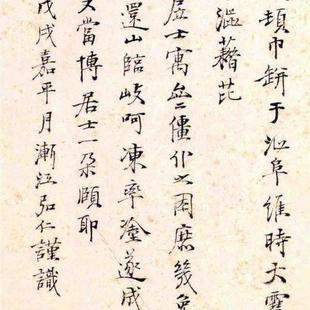 頓巾餅于沁阜維時大雪
溫藉芘
居士寓無二僵仆之困庶幾免
還山臨岐呵凍率塗遂成
又當博居士一朵頤耶
戊戌嘉平月漸江弘仁謹識